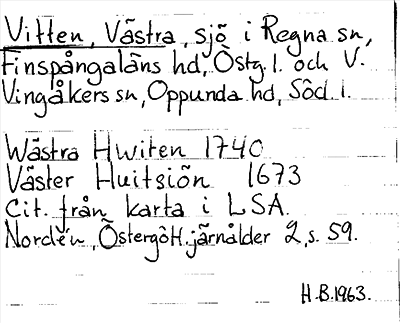 Vitten, Västra, sjö i Regna sn,
Finspångaläns hd, Östg. l. och V.
Vingåkers sn, Oppunda hd, Söd. l.
Wästra Hwiten 1740
Väster Huitsiön 1673
Cit. från karta i LSA.
Nordén, Östergötl. järnålder 2, s. 59.
H.B.1963.